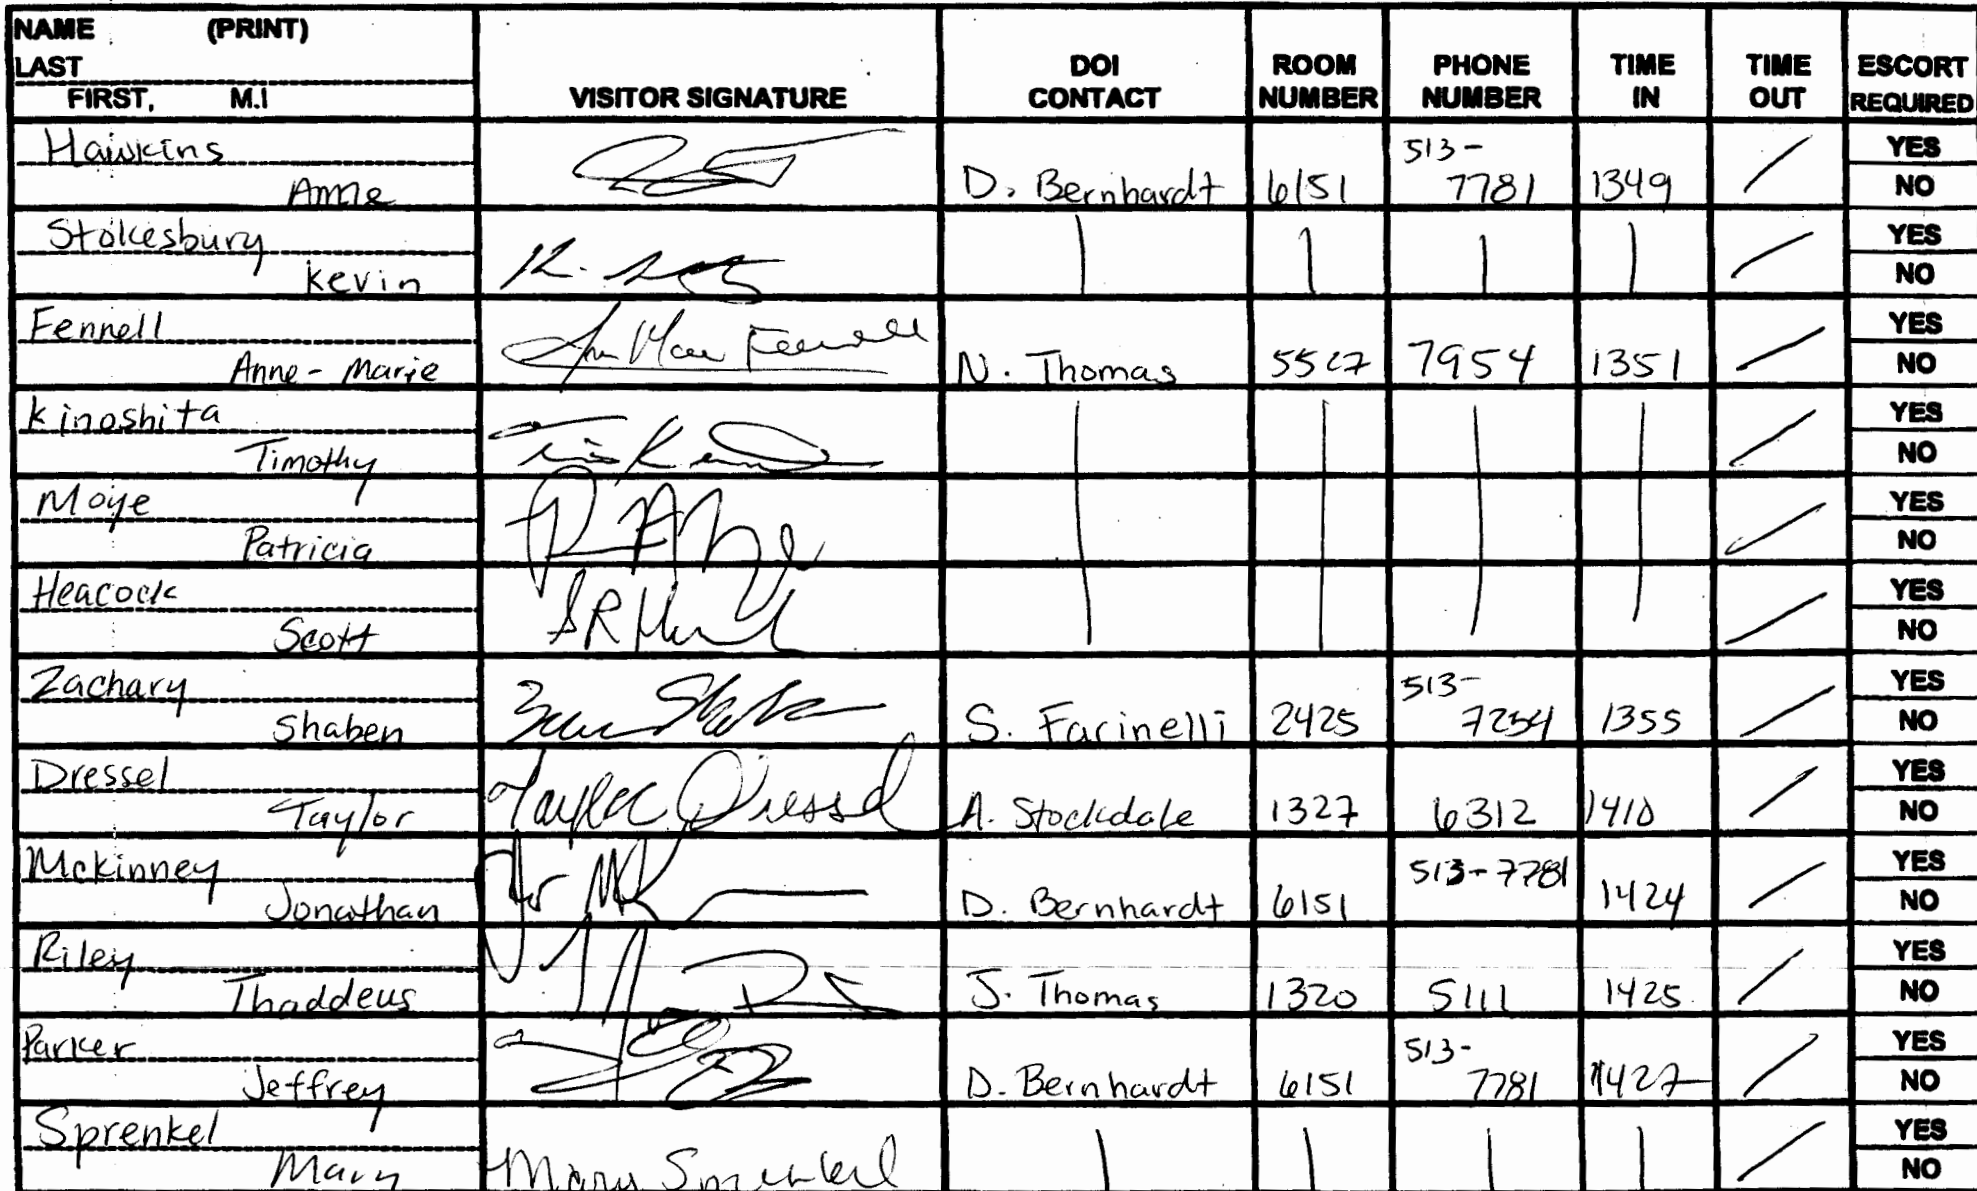 NAME (PRINT)
LAST
FIRST, M.I
VISITOR SIGNATURE
DOI CONTACT
ROOM NUMBER
PHONE NUMBER
TIME IN
TIME OUT
ESCORT REQUIRED
Hawkins YES
Anne D. Bernhardt 6151 513-7781 1349 NO
Stokesbury YES
Kevin NO
Fennell YES
Anne-Marie N. Thomas 5527 7954 1351 NO
Kinoshita YES
Timothy NO
Moye YES
Patricia NO
Heacock YES
Scott NO
Zachary YES
Shaben S. Farinelli 2425 513-7254 1355 NO
Dressel YES
Taylor Taylor Dressel A. Stockdale 1327 6312 1410 NO
Mckinney YES
Jonathan D. Bernhardt 6151 513-7781 1424 NO
Riley YES
Thaddeus J. Thomas 1320 5111 1425 NO
Parker YES
Jeffrey D. Bernhardt 6151 513-7781 1427 NO
Sprenkel YES
Mary Mary Sprenkel NO